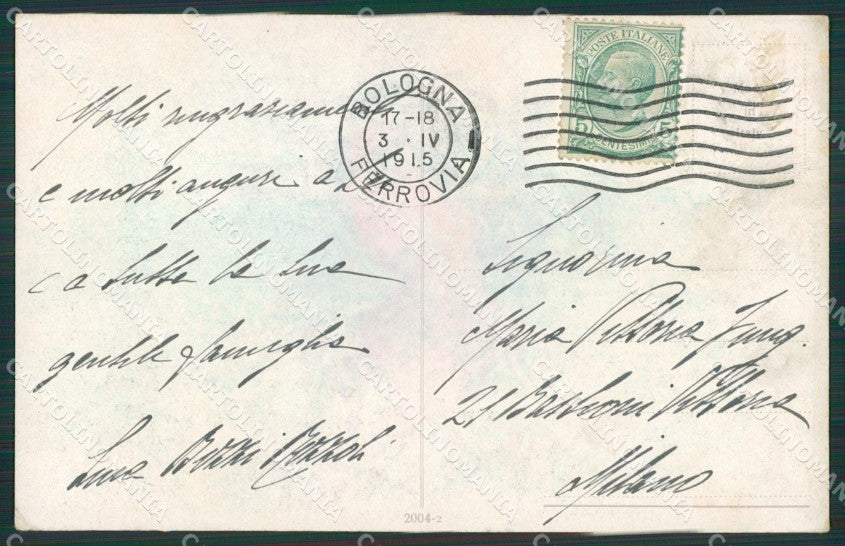 Molti ringraziamenti
e molti auguri a
e a tutta la sua
gentile famiglia
BOLOGNA
17-18
3 . IV
1915
FERROVIA
POSTE ITALIANE
5 CENTESIMI 5
Signorina
Maria Vittoria Jung.
21 Bastioni Vittoria
Milano
2004-2
CARTOLINOMANIA